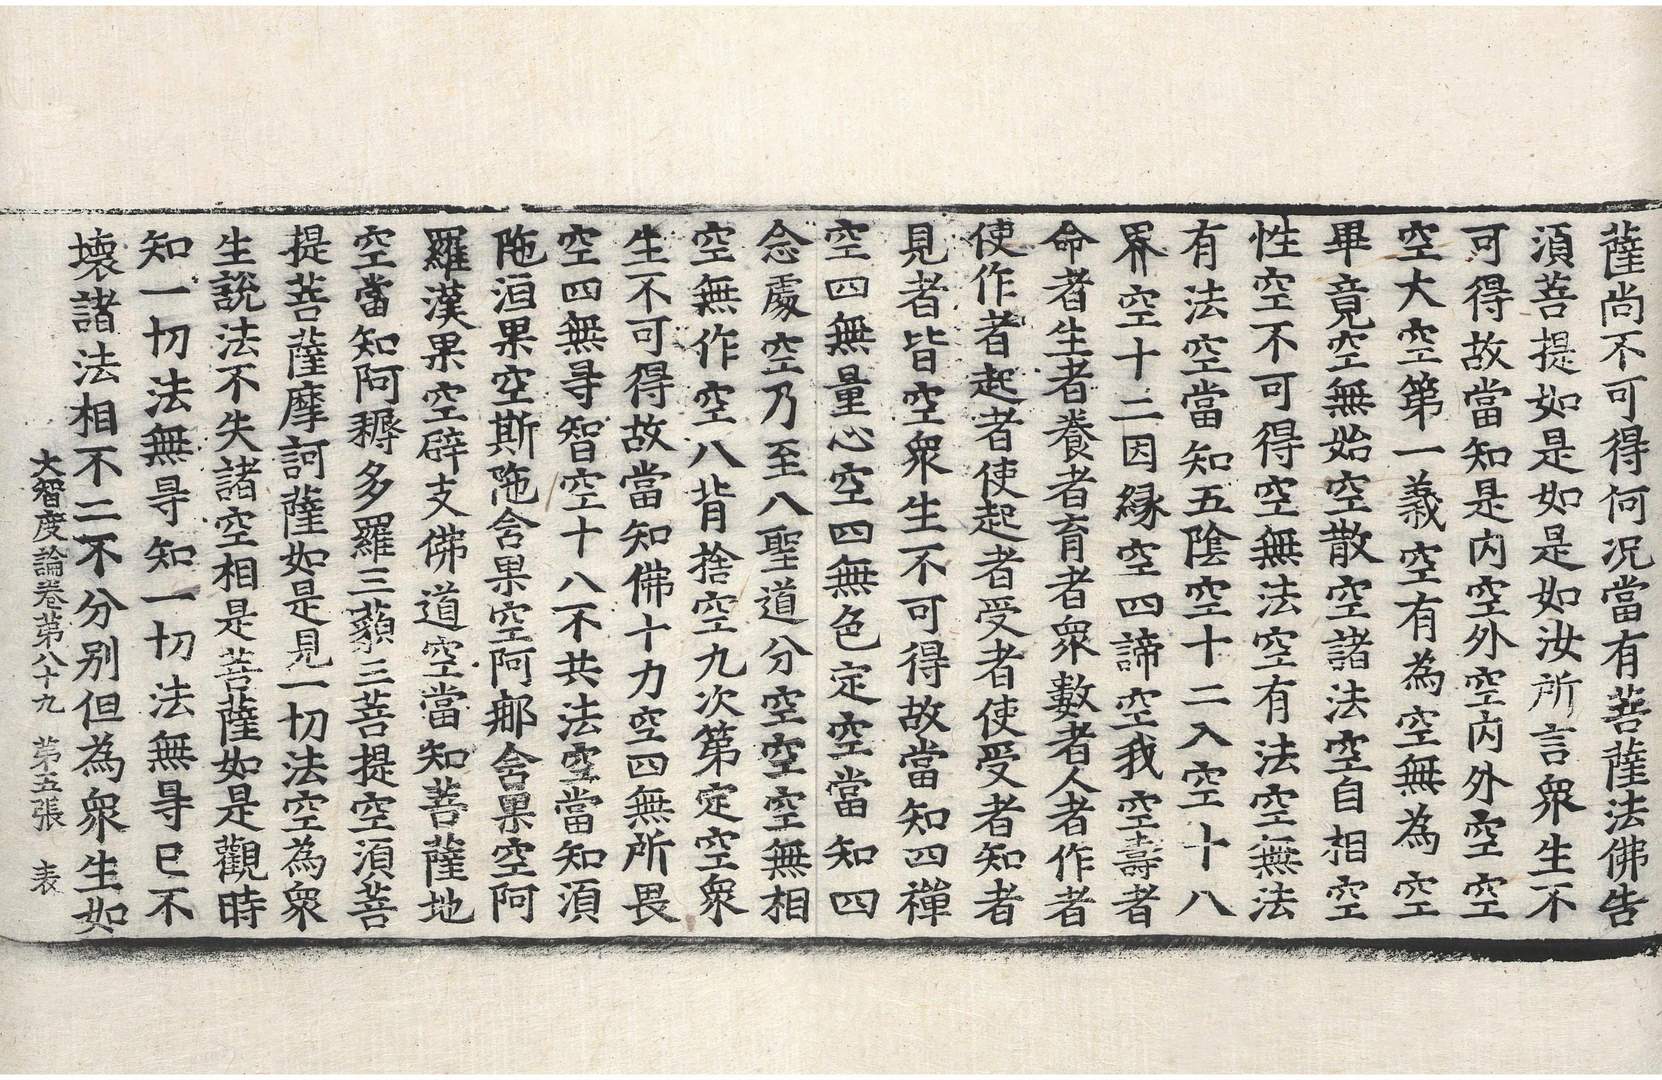 薩尚不可得何況當有菩薩法佛告
湏菩提如是如是如汝所言衆生不
可得故當知是內空外空內外空空
空大空第一義空有為空無為空
畢竟空無始空散空諸法空自相空
性空不可得空無法空有法空無法
有法空當知五陰空十二入空十八
界空十二因緣空四諦空我空壽者
命者生者養者育者衆數者人者作者
使作者起者使起者受者使受者知者
見者皆空衆生不可得故當知四禪
空四無量心空四無色定空當知四
念處空乃至八聖道分空空空無相
空無作空八背捨空九次第定空衆
生不可得故當知佛十力空四無所畏
空四無㝵智空十八不共法空當知湏
陁洹果空斯陁含果空阿那含果空阿
羅漢果空辟支佛道空當知菩薩地
空當知阿耨多羅三藐三菩提空湏菩
提菩薩摩訶薩如是見一切法空為衆
生說法不失諸空相是菩薩如是觀時
知一切法無㝵知一切法無㝵已不
壞諸法相不二不分別但為衆生如
大智度論卷第八十九 第五張 表